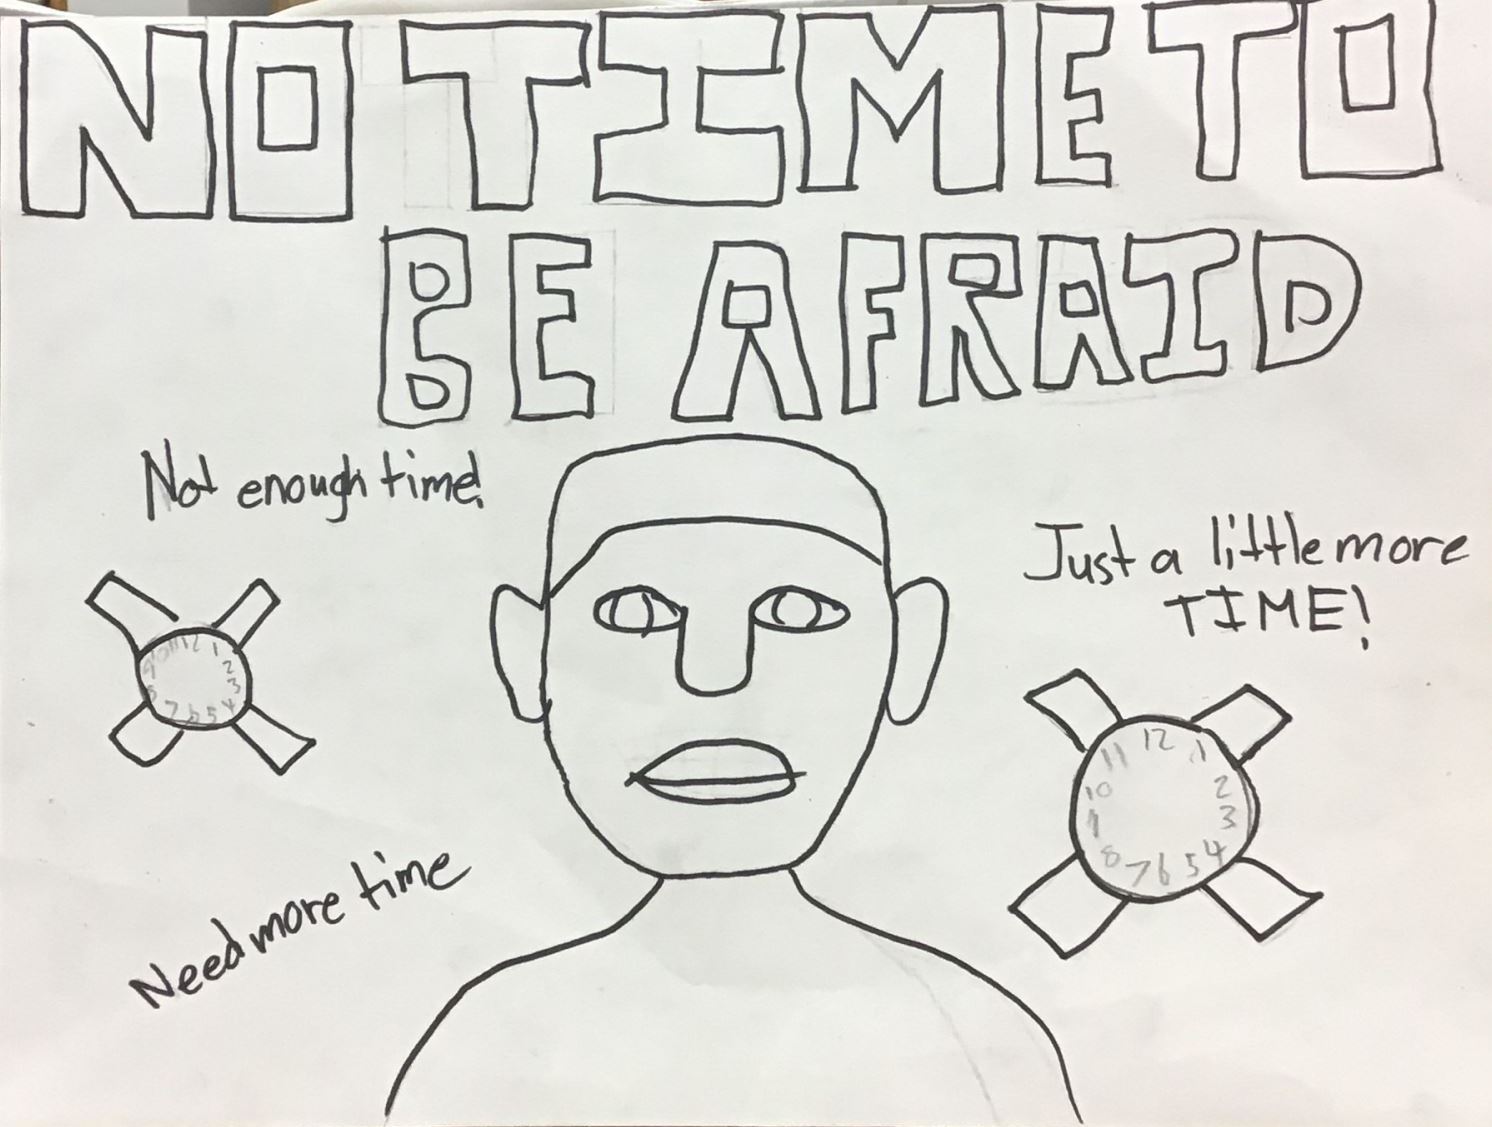 NO TIME TO
BE AFRAID
Not enough time!
Just a little more
TIME!
12
11 1
10 2
9 3
8 4
7 6 5
12
11 1
10 2
9 3
8 4
7 6 5
Need more time